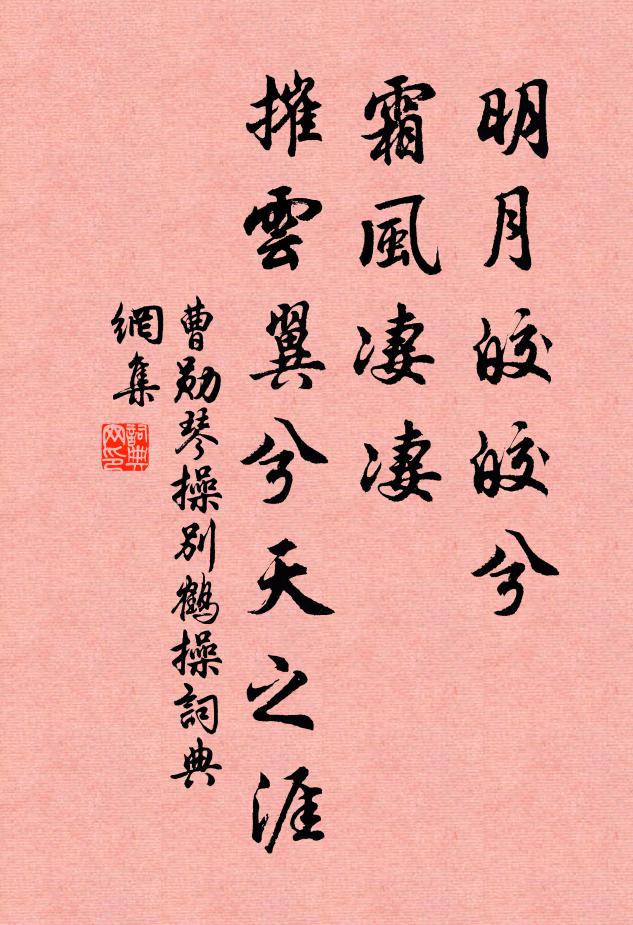 明月皎皎兮
霜風凄凄
摧雲翼兮天之涯
曹勛琴操別鶴操詞典
網集
詞典
网印